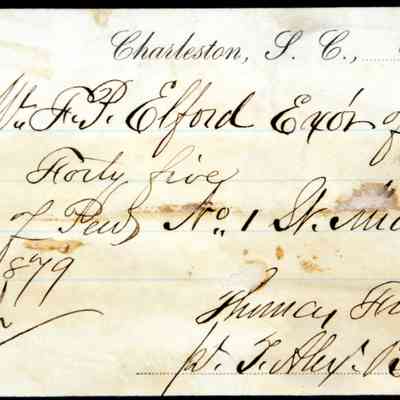 Charleston, S. C.,
Mr. F. P. Elford Exor of
Forty five
of Pew No. 1 St. Mic
1879
Thomas Fr
pr. T. Alexr.